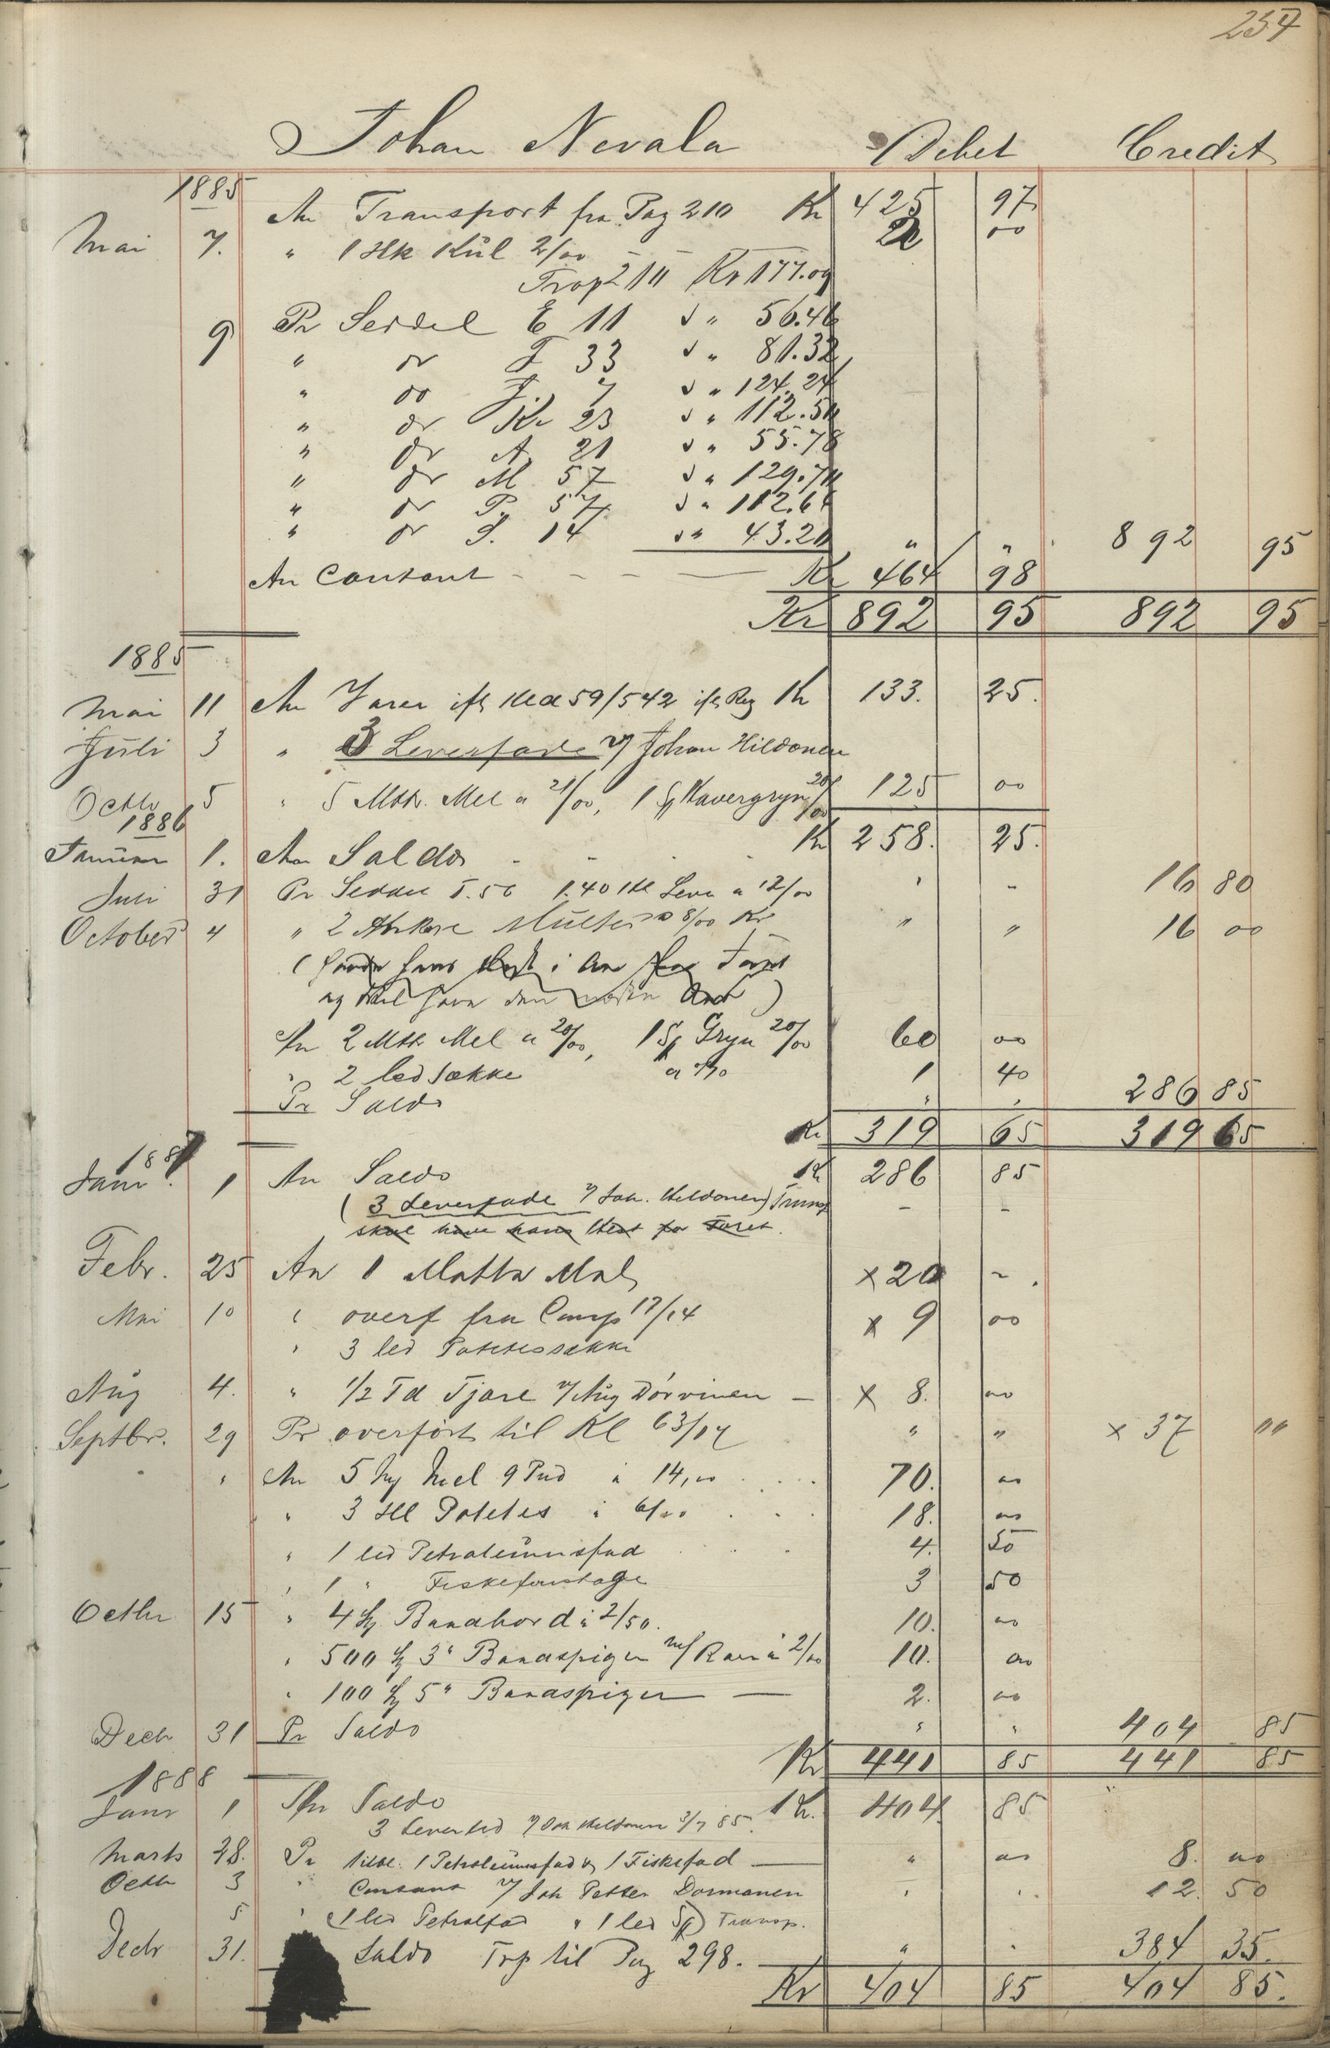 254
Johan Nevala Debet Credit
1885
An Transport fra Pag 210 Kr 425 97
Mai 7. " 1 Hk Kül 2/00 2 00
Trsp 210 Kr 177.09
9 Pr Seddel E 11 " 56.46
" do F 33 " 81.32
" do J. 7 " 124.24
" do Kr 23 " 112.50
" do A. 21 " 55.78
" do M 57 " 129.70
" do P. 57. " 112.64
" do S. 14 " 43.20 " " 892 95
An Contant Kr 464 98
Kr 892 95 892 95
1885
Mai 11 An Varer ift Kla 59/542 ift Reg Kr 133. 25.
Juli 3 " 3 Leverfade v/ Johan Hildonen
Octbr 5 " 5 Mtr. Mel a 21/00, 1 Sk Havergryn 20/00 125 00
1886 Kr 258. 25.
Januar 1. An Saldo
Juli 31 Pr Seddel I. 56 1.40 Hl Lever a 12/00 " " 16 80
October 4 " 2 Ankere Multer a 8/00 Kr " " 16 00
An 2 Mtr Mel a 20/00, 1 Sk Gryn 20/00 60 00
" 2 led Sække a 70 1 40
Pr Saldo " " 286 85
Kr 319 65 319 65
1887
Janr. 1 An Saldo Kr 286 85
(3 Leverfade v/ Joh. Hildonen) Transp - -
skal have hans Hest for Foret.
Febr. 25 An 1 Matte Mel x 20 " .
Mai 10 " overf fra Comp 17/14 x 9 00
" 3 led Potetessække
Aug 4. " 1/2 Td Tjære v/ Aug Dorvinen — x 8. 00
Septbr. 29 Pr overført til Kl 63/04 " " x 37 ""
" An 5 Mel 9 Pud a 14,00 70. 00
" 3 Hl Potetes a 6/00 18. 00
" 1 led Petroleumsfad 4. 50
" 1 " Fiskefoustage 3 50
Octbr 15 " 4 Baadbord a 2/50. 10. 00
" 500 3" Baadspiger m/ Roer a 2/00 10. 00
" 100 5" Baadspiger — 2. 00
Decbr 31 Pr Saldo " " 404 85
Kr 441 85 441 85
1888
Janr 1 An Saldo Kr. 404. 85 "
3 Leverled v/ Joh Hildonen 3/7 85.
Marts 28. Pr 1 Petroleumsfad & 1 Fiskefad — " 00 8. 00
Octbr 3 " Contant v/ Joh Petter Dormanen " " 12. 50
5 " (1 led Petrolfad " 1 led Transp.
Decbr 31. Saldo Trsp til Pag 298. " " 384 35.
Kr 404 85 404 85.